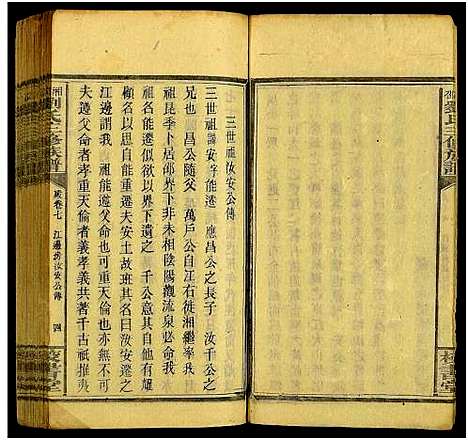 三世祖汝安公傳
三世祖諱汝安字能遷 應昌公之長子 汝千公之
兄也 昌公隨 萬戶公自江右徙湘繼率我
祖昆季卜居邵界下非未相陰陽觀流泉必命我
祖名能遷似欲以界下遺之 千公意其自有雄
柳名以思自能重遷夫安土故班其名曰汝安遷之
江邊謂我 祖能遵父命也可重天倫也亦無不可
夫遵父命者孝重天倫者義孝義共著千古祇推夷
劉氏三修族譜
卷七 江邊房汝安公傳 四
劉氏三修族譜
校書堂